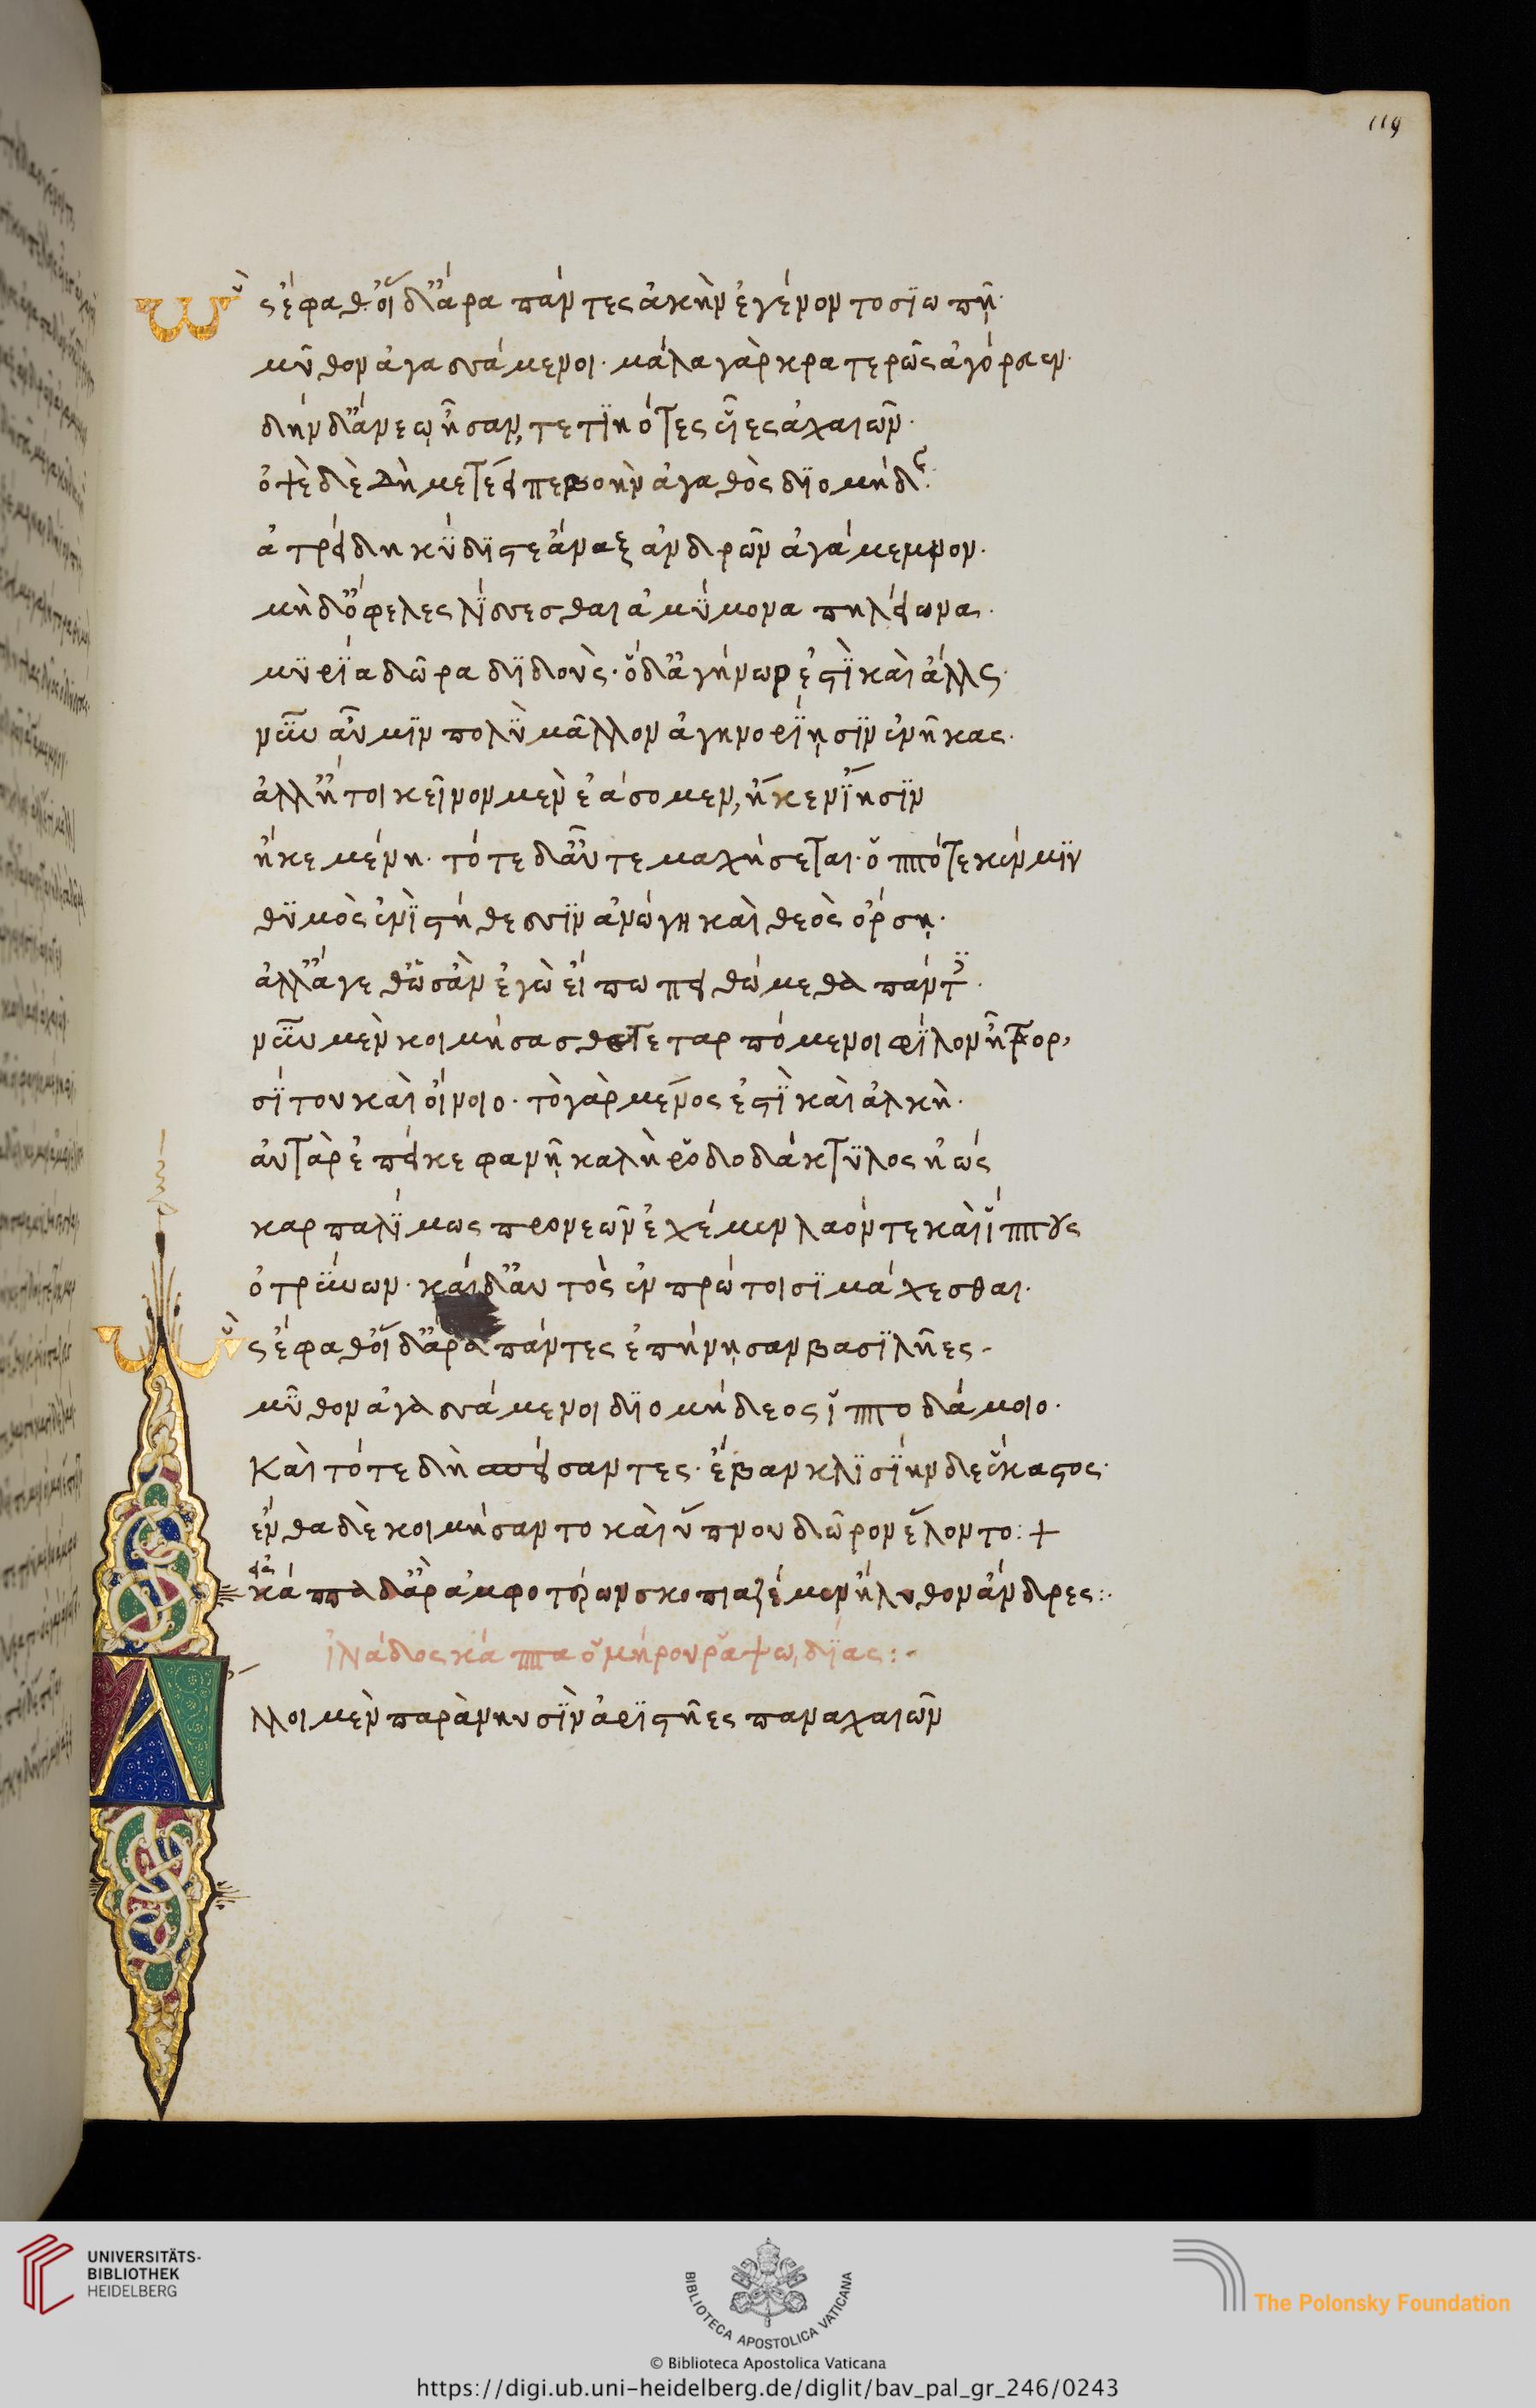 119
ὣς ἔφαθ' οἱ δ' ἄρα πάντες ἀκὴν ἐγένοντο σϊωπῆ·
μῦθον ἀγασσάμενοι· μάλα γὰρ κρατερῶς ἀγόρευεν·
δὴν δ' ἄνεῳ ἦσαν, τετϊηότες υἷες ἀχαιῶν·
ὀψὲ δὲ δὴ μετέειπε βοὴν ἀγαθὸς δϊομήδης·
ἀτρείδη κύδϊστε ἄναξ ἀνδρῶν ἀγάμεμνον·
μὴ δ' ὄφελες λίσσεσθαι ἀμύμονα πηλείωνα·
μϋρία δῶρα δϊδοὺς· ὁ δ' ἀγήνωρ ἐστὶ καὶ ἄλλως·
νῦν αὖ μϊν πολὺ μᾶλλον ἀγηνορίῃσϊν ἐνῆκας·
ἀλλ' ἤτοι κεῖνον μὲν ἐάσομεν, ἤ κεν ἴησϊν
ἤ κε μένη· τότε δ' αὖτε μαχήσεται· ὁππότε κέν μϊν
θϋμὸς ἐνὶ στήθεσσϊν ἀνώγη καὶ θεὸς ὄρσῃ·
ἀλλ' ἄγεθ' ὡς ἂν ἐγὼ εἴπω πειθώμεθα πάντες·
νῦν μὲν κοιμήσασθε τεταρπόμενοι φίλον ἦτορ,
σίτου καὶ οἴνοιο· τὸ γὰρ μένος ἐστὶ καὶ ἀλκὴ·
αὐτὰρ ἐπεί κε φανῇ καλὴ ῥοδοδάκτϋλος ἠώς
καρπαλίμως προνεῶν ἐχέμεν λαόν τε καὶ ἵππους
ὀτρύνων· καί δ' αὐτὸς ἐν πρώτοισϊ μάχεσθαι·
ὣς ἔφαθ' οἱ δ' ἄρα πάντες ἐπήνῃσαν βασϊλῆες·
μῦθον ἀγασσάμενοι δϊομήδεος ἱπποδάμοιο·
Καὶ τότε δὴ σπείσαντες· ἔβαν κλϊσίην δε ἕκαστος·
ἔνθα δὲ κοιμήσαντο καὶ ὕπνου δῶρον ἕλοντο: +
κάππα δ' ἄρ ἀμφοτέρων σκοπιαζέμεν ἤλυθον ἄνδρες:·
ἰλιάδος κάππα ὁμήρου ῥαψωδίας:·
Ἄλλοι μὲν παρὰ νηυσὶν ἀρϊστῆες παναχαιῶν
UNIVERSITÄTS-
BIBLIOTHEK
HEIDELBERG
BIBLIOTECA APOSTOLICA VATICANA
The Polonsky Foundation
© Biblioteca Apostolica Vaticana
https://digi.ub.uni-heidelberg.de/diglit/bav_pal_gr_246/0243